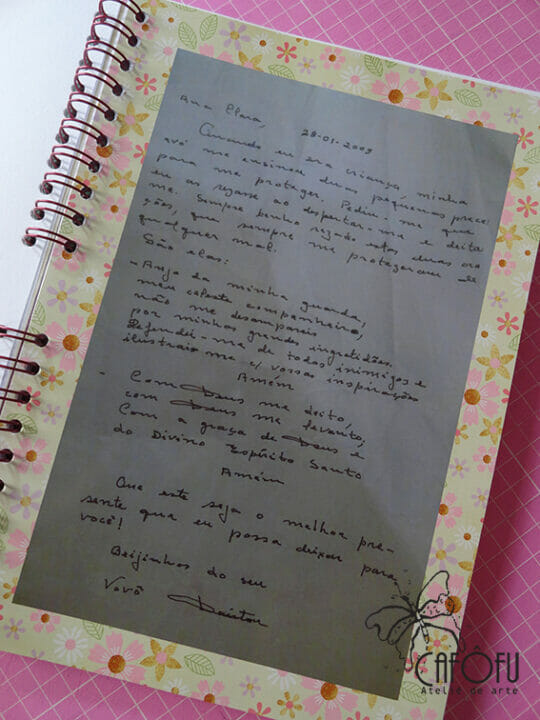 Ana Clara,
28-01-2009
Quando eu era criança, minha
vó me ensinou duas pequenas prece
para me proteger. Pediu-me que
eu as rezasse ao despertar-me e deita
me. Sempre tenho rezado estas duas ora
ções, que sempre me protegeram de
qualquer mal.
São elas:
- Anjo da minha guarda,
meu celeste companheiro,
não me desampareis
por minhas grandes ingratidões.
Defendei-me de todos inimigos e
ilustrai-me c/ vossas inspirações
Amém
- Com Deus me deito,
com Deus me levanto,
Com a graça de Deus e
do Divino Espírito Santo
Amém
Que este seja o melhor pre-
sente que eu possa deixar para
você!
Beijinhos do seu
Vovô
CAFOFU
Ateliê de arte